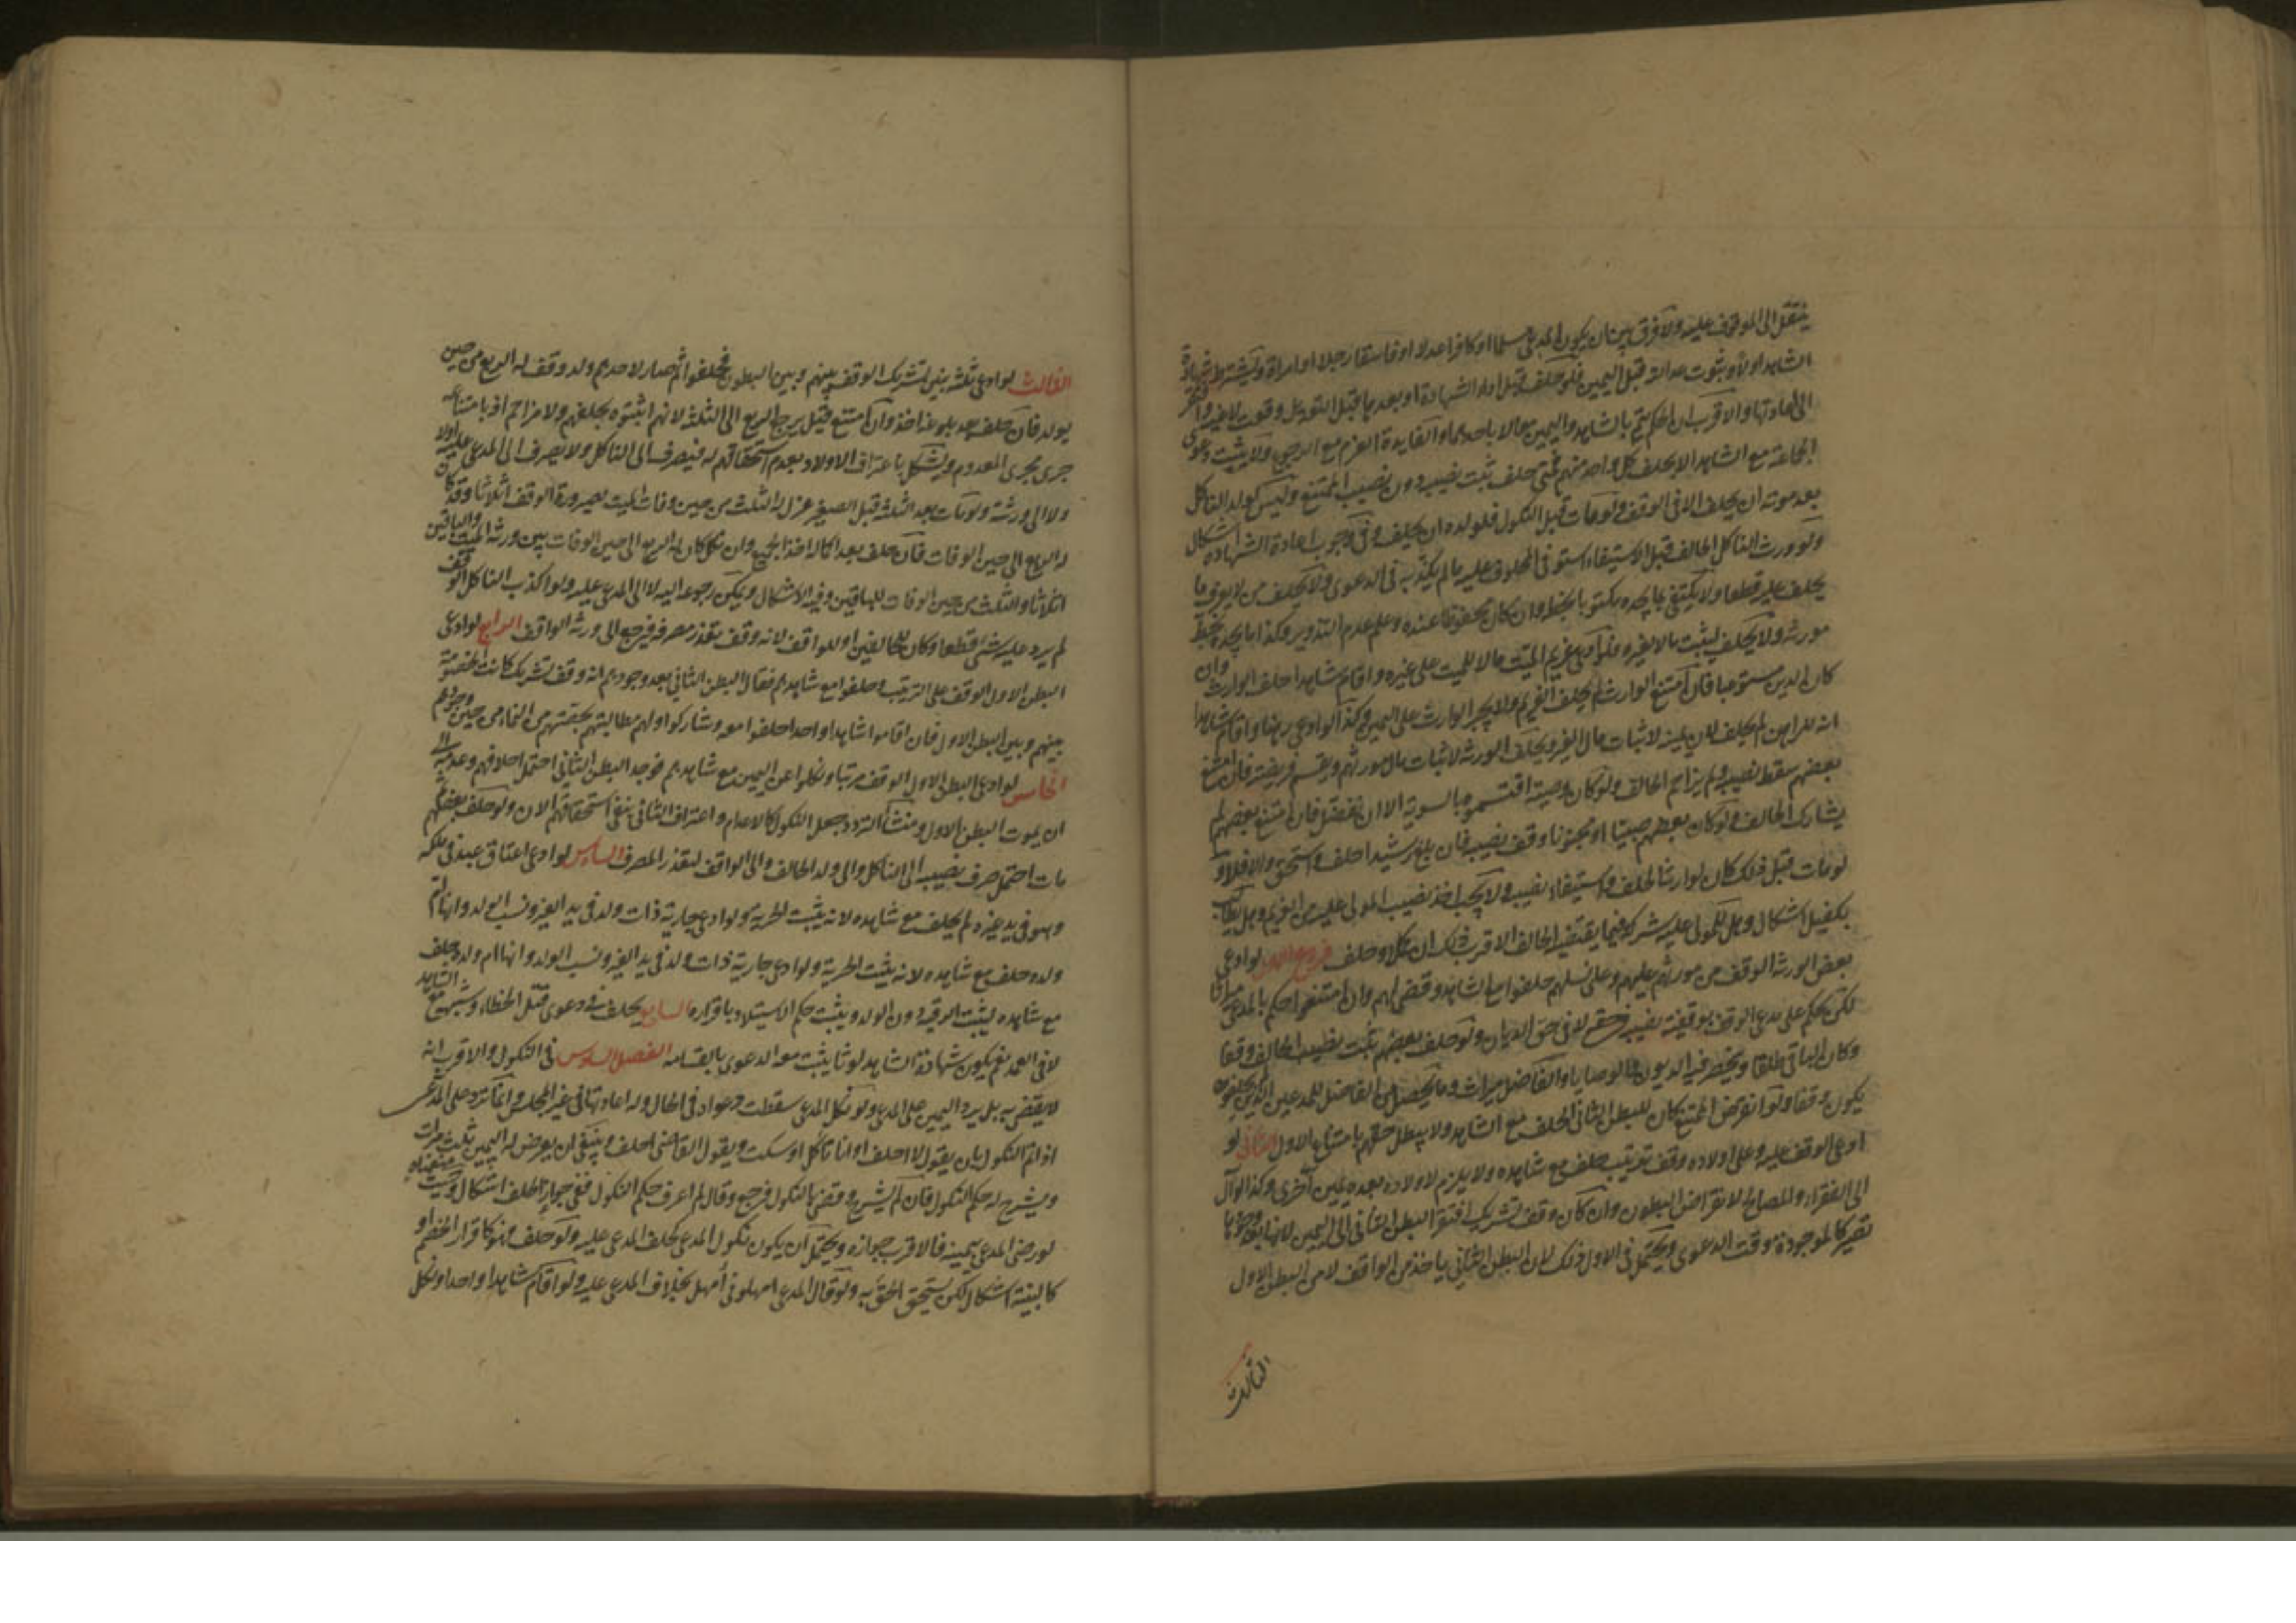 ينتقل الى الموقوف عليه ولا فرق بين ان يكون المدعى مسلما او كافرا عدلا او فاسقا رجلا او امراة ويشترط شهادة
الشاهد اولا وثبوت عدالته قبل اليمين فلو حلف قبل اداء الشهادة او بعدها قبل التعديل وقعت لاغية وافتقر
الى اعادتها والاقرب ان الحكم يتم بالشاهد واليمين معا لا باحدهما والفايدة الغرم مع الرجوع ولا يثبت دعوى
الجماعة مع الشاهد الا بحلف كل واحد منهم فمتى حلف ثبت نصيبه دون نصيب الممتنع وليس لولد الناكل
بعد موته ان يحلف الا فى الوقف ولو مات قبل النكول فلولده ان يحلف وفى وجوب اعادة الشهادة اشكال
ولو ورث الناكل الحالف قبل الاستيفاء استوفى المحلوف عليه ما لم يكذبه فى الدعوى ولا يحلف من لا يعرف ما
يحلف عليه قطعا ولا يكتفى بما يجده مكتوبا بخطه وان كان محفوظا عنده وعلم عدم التزوير وكذا ما يجده بخط
مورثه ولا يحلف ليثبت مالا لغيره فلو ادعى غريم الميت مالا للميت على غيره واقام شاهدا حلف الوارث وان
كان الدين مستوعبا فان امتنع الوارث لم يحلف الغريم ولا يجبر الوارث على اليمين وكذا لو ادعى رهنا واقام شاهدا
انه للراهن لم يحلف لان يمينه لاثبات مال الغير ويحلف الورثة لاثبات مال مورثهم ويقسم فريضة فان امتنع
بعضهم سقط نصيبه ولم يزاحم الحالف ولو كان وصية اقتسموه بالسوية الا ان تفضل فان امتنع بعضهم لم
يشارك الحالف ولو كان بعضهم صبيا او مجنونا وقف نصيبه فان بلغ رشيدا حلف واستحق والا فلا و
لو مات قبل ذلك كان لوارثه الحلف واستيفاء نصيبه ولا يجب اخذ نصيب المولى عليه من الغريم وهل يطالب
بكفيل اشكال وهل للمولى عليه شركة فيما يقبضه الحالف الاقرب ذلك ان كمل وحلف فروع الاول لو ادعى
بعض الورثة الوقف من مورثهم عليهم وعلى نسلهم حلفوا مع الشاهد وقضى لهم وان امتنعوا حكم بالمدعى ميراثا
لكن يحكم على مدعى الوقف بوقفية نصيبه فى حقه لا فى حق الديان ولو حلف بعضهم ثبت نصيب الحالف وقفا
وكان الباقى طلقا ويخص فيه الديون والوصايا والفاضل ميراث وما يحصل من الفاضل للمدعين الذين يحلفون
يكون وقفا ولو انقرض الممتنع كان للبطن الثانى الحلف مع الشاهد ولا يبطل حقهم بامتناع الاول الثانى لو
ادعى الوقف عليه وعلى اولاده وقف ترتيب حلف مع شاهده ولا يلزم لاولاده بعده يمين اخرى وكذا لو آل
الى الفقراء والمصالح لانقراض البطون وان كان وقف تشريك افتقر البطن الثانى الى اليمين لانها بعد وجودها
تصير كالموجودة وقت الدعوى ويحتمل فى الاول ذلك لان البطن الثانى ياخذ من الواقف لا من البطن الاول
الثالث
الثالث لو ادعى ثلثة بنين تشريك الوقف بينهم وبين البطون فحلفوا ثم صار لاحدهم ولد وقف له الربع من حين
يولد فان حلف بعد بلوغه اخذ وان امتنع قيل يرجع الربع الى الثلثة لانهم اثبتوه بحلفهم ولا مزاحم اذ بامتناعه
جرى مجرى المعدوم ويشكل باعتراف الاولاد بعدم استحقاقهم له فيصرف الى الناكل ولا يصرف الى المدعى عليه اولا
ولا الى ورثته ولو مات احد الثلثة قبل الصغير عزل له الثلث من حين وفات الميت لصيرورة الوقف اثلاثا وقد كان
له الربع الى حين الوفات فان حلف بعد كماله اخذ الجميع وان نكل كان له الربع الى حين الوفات بين ورثة الميت والباقين
اثلاثا والثلث من حين الوفات للباقين وفيه الاشكال ويمكن رجوعه اليه لا الى المدعى عليه ولو اكذب الناكل الوقف
لم يرد عليه شئ قطعا وكان للحالفين او للواقف لانه وقف تعذر مصرفه فيرجع الى ورثة الواقف الرابع لو ادعى
البطن الاول الوقف على الترتيب وحلفوا مع شاهدهم فقال البطن الثانى بعد وجودهم انه وقف تشريك كانت الخصومة
بينهم وبين البطن الاول فان اقاموا شاهدا واحدا حلفوا معه وشاركوا ولهم مطالبتهم بحصتهم من النماء من حين وجودهم
الخامس لو ادعى البطن الاول الوقف مرتبا ونكلوا عن اليمين مع شاهدهم فوجد البطن الثانى احتمل احلافهم وعدمه الى
ان يموت البطن الاول ومنشأ التردد جعل النكول كالاعدام واعتراف الثانى بنفى استحقاقهم الان ولو حلف بعضهم ثم
مات احتمل صرف نصيبه الى الناكل والى ولد الحالف والى الواقف لتعذر المصرف السادس لو ادعى اعتاق عبد فى ملكه
وهو فى يد غيره لم يحلف مع شاهده لانه يثبت الحرية ولو ادعى جارية ذات ولد فى يد الغير ونسب الولد وانها ام
ولده حلف مع شاهده لانه يثبت الحرية ولو ادعى جارية ذات ولد فى يد الغير ونسب الولد وانها ام ولده حلف
مع شاهده ليثبت الرقية دون الولد ويثبت حكم الاستيلاد باقراره السابع يحلف فى دعوى قتل الخطاء وشبهه مع الشاهد
لا فى العمد نعم يكون شهادة الشاهد لوثا يثبت معه الدعوى بالقسامة الفصل السادس فى النكول والاقرب انه
لا يقضى به بل يرد اليمين على المدعى ولو نكل المدعى سقطت دعواه فى الحال وله اعادتها فى غير المجلس وانما ترد على المدعى
اذا تم النكول بان يقول لا احلف او انا ناكل او سكت ويقول القاضى احلف وينبغى ان يعرض له اليمين ثلث مرات
ويشرح له حكم النكول فان لم يشرح وقضى بالنكول فرجع وقال لم اعرف حكم النكول ففى جواز الحلف اشكال وحيث منعناه
لو رضى المدعى بيمينه فالاقرب جوازه ويحتمل ان يكون نكول المدعى كحلف المدعى عليه ولو حلف فهو كاقرار الخصم او
كالبينة اشكال لكن يستحق الحق به ولو قال المدعى امهلونى امهل بخلاف المدعى عليه ولو اقام شاهدا واحدا ونكل